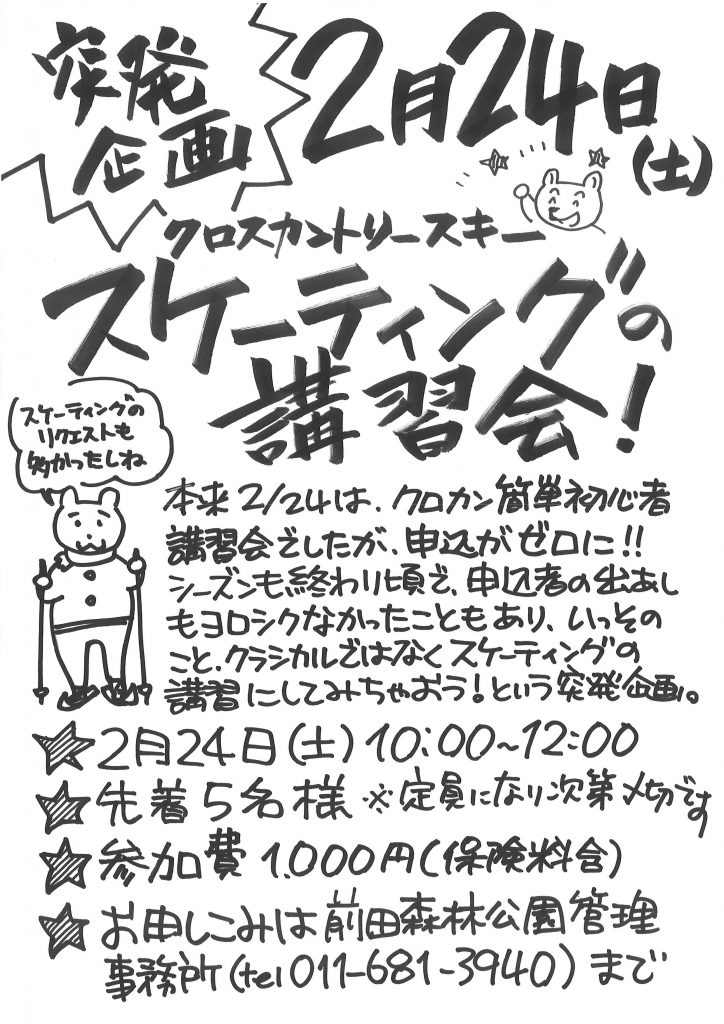 突発
企画
2月24日
(土)
クロスカントリースキー
スケーティングの
講習会!
スケーティングの
リクエストも
多かったしね
本来2/24は、クロカン簡単初心者
講習会でしたが、申込がゼロに!!
シーズンも終わり頃で、申込者の出あし
もヨロシクなかったこともあり、いっその
こと、クラシカルではなくスケーティングの
講習にしてみちゃおう!という突発企画。
★2月24日(土)10:00~12:00
★先着5名様 ※定員になり次第〆切です
★参加費 1.000円(保険料含)
★お申しこみは前田森林公園管理
事務所(tel 011-681-3940)まで